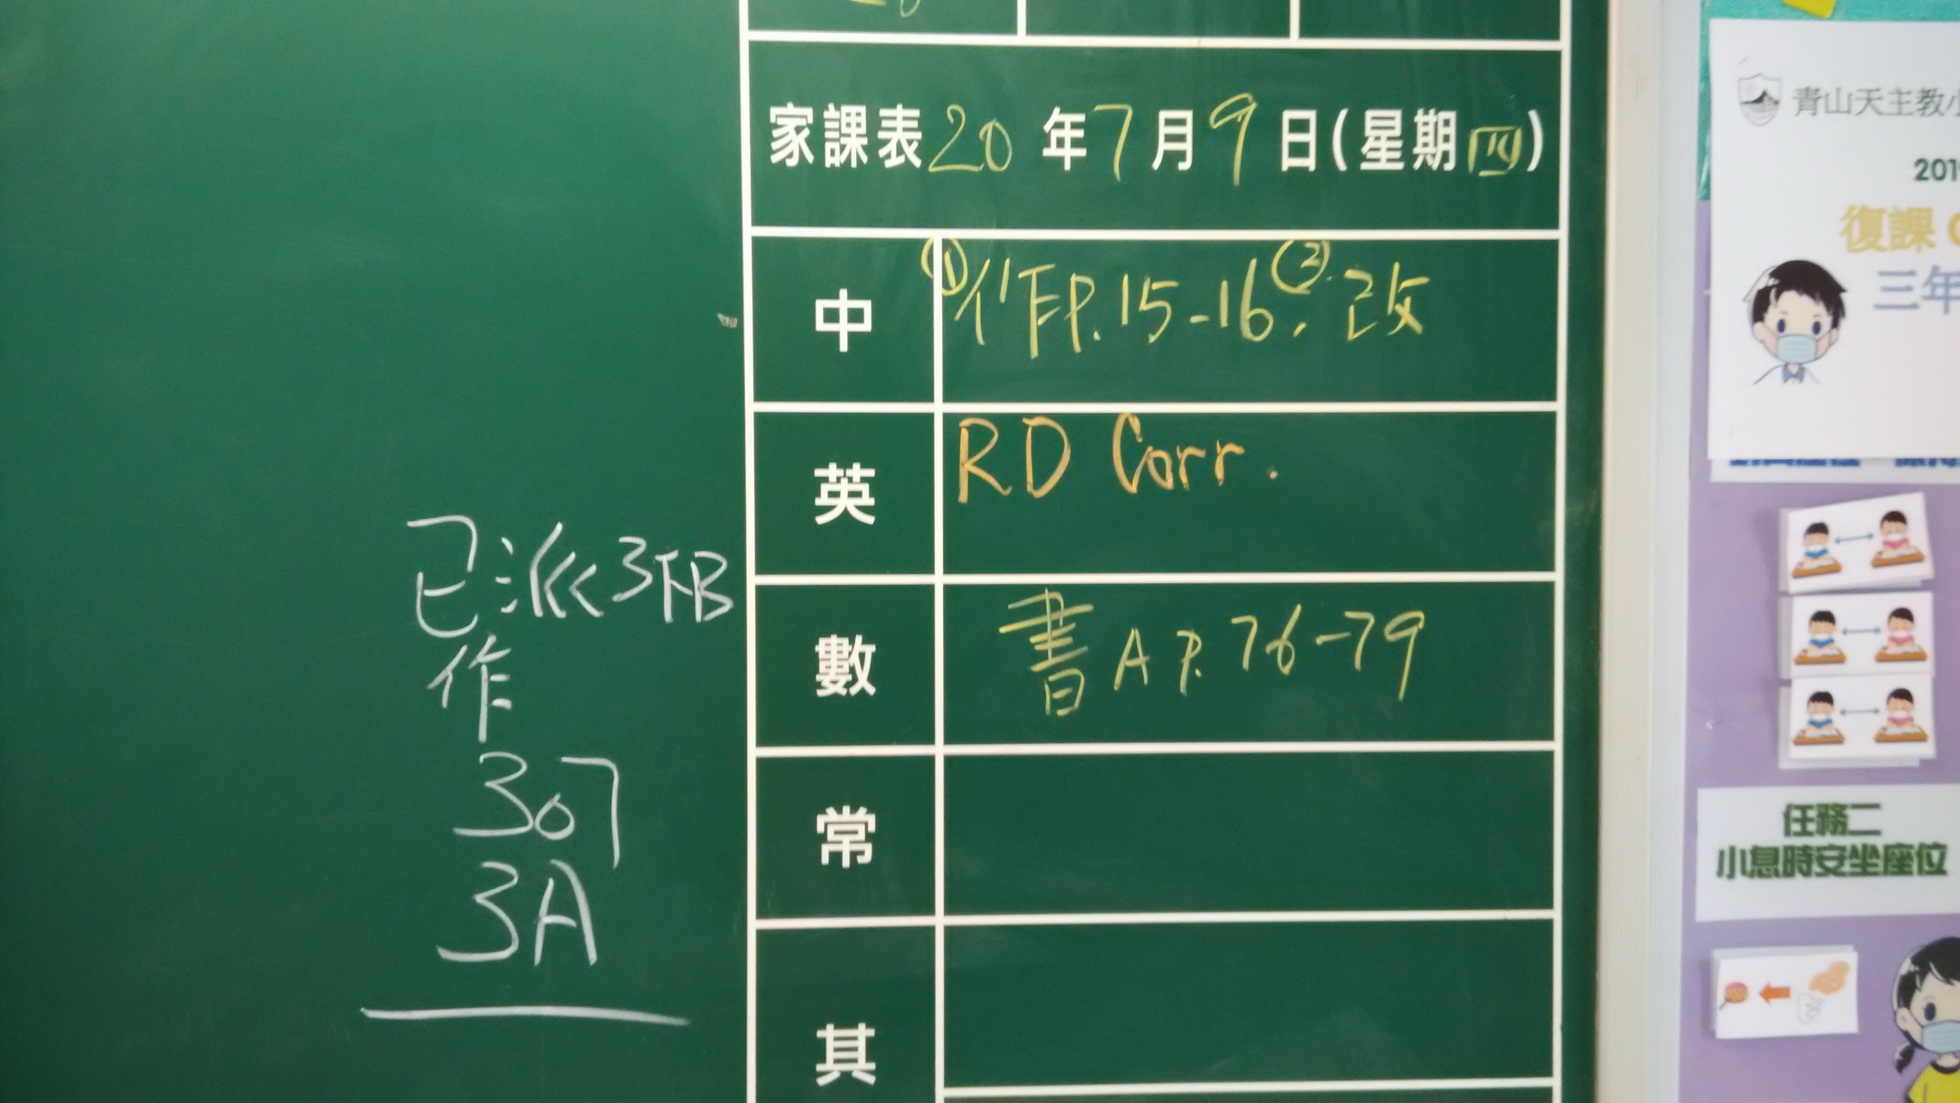 家課表20年7月9日(星期四)
中 ①作P.15-16②.改
英 RD Corr.
數 書A P.76-79
常
其
已派3下B
作
307
3A
青山天主教小
201
復課
三年
任務二
小息時安坐座位